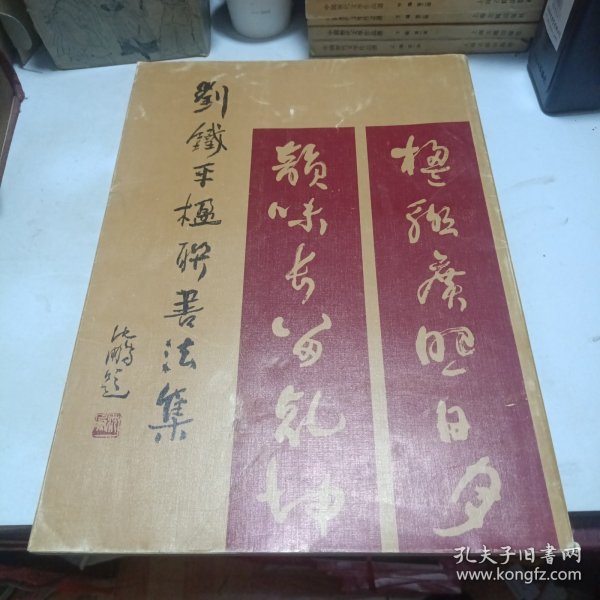 楹聯廣照日月
韻味長留乾坤
劉鐵平楹聯書法集
沈鵬題
孔夫子旧书网
www.kongfz.com